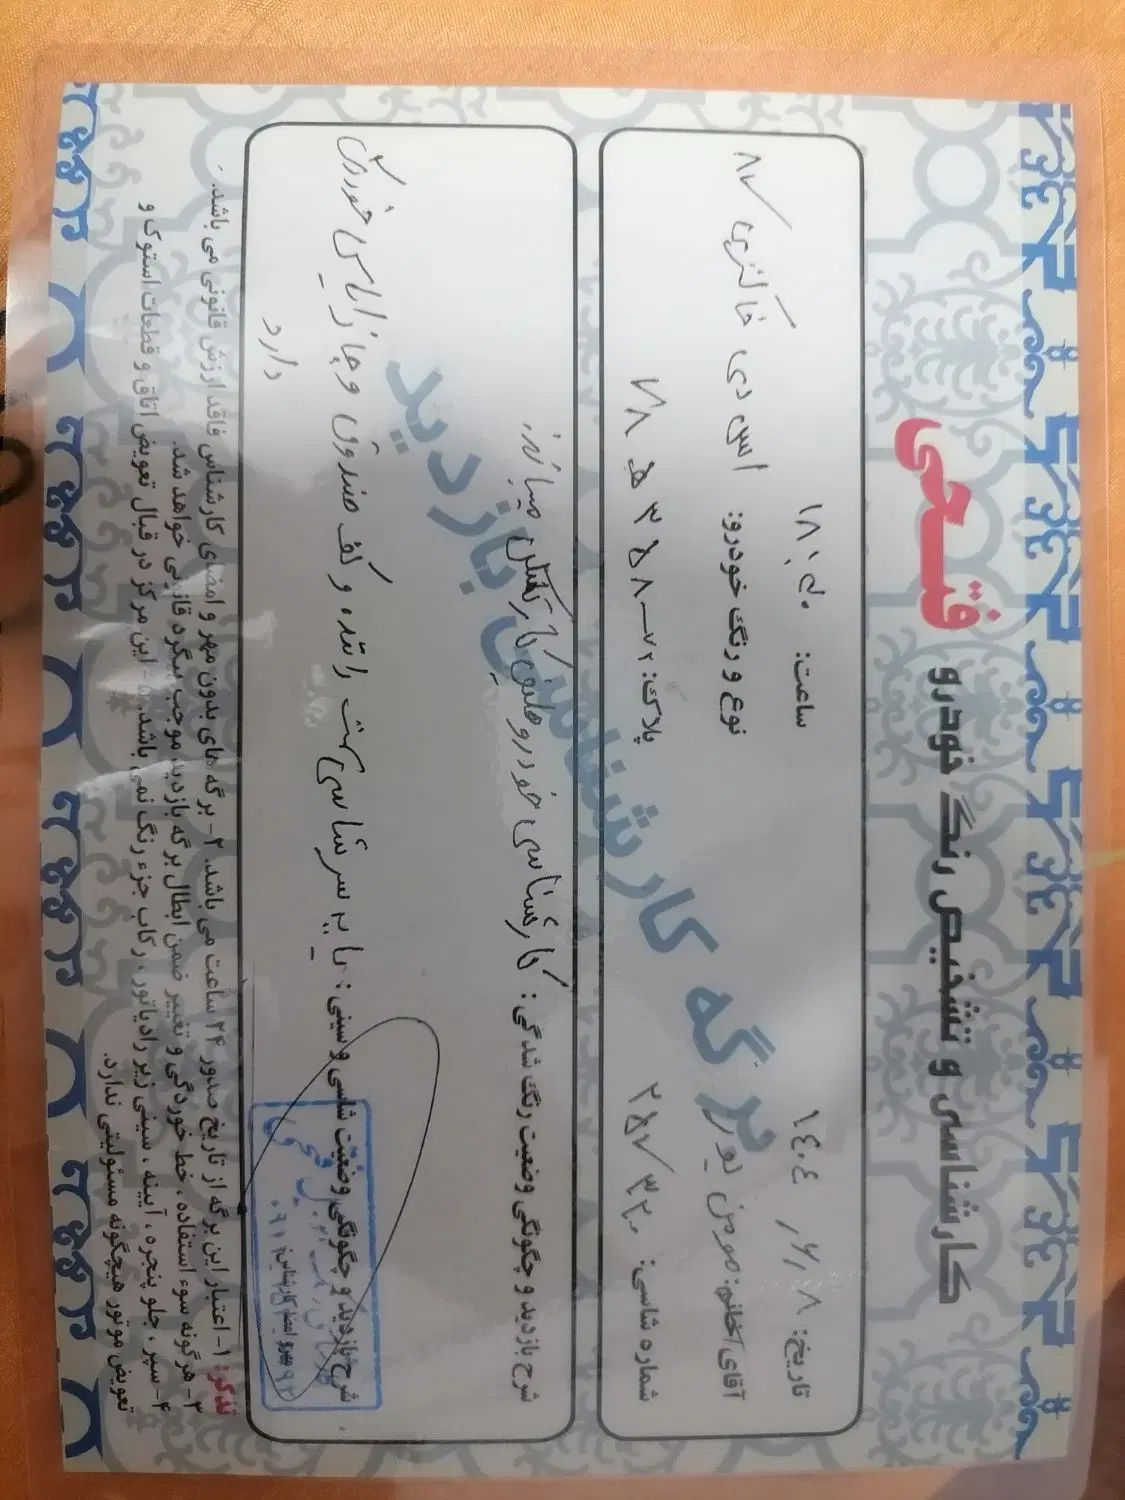 فتحی
کارشناسی و تشخیص رنگ خودرو
برگه کارشناسی بازدید
تاریخ: ۱۴۰۴/۶/۰۸ ساعت: ۱۸:۴۰
آقای/خانم: مومن نوع و رنگ خودرو: اس دی خاکستری ۸۷
شماره شاسی: ۲۵۷۳۲۰ پلاک: ۷۲-۳۵۸ ه ۷۸
شرح بازدید و چگونگی وضعیت رنگ شدگی: کارشناسی خودرو طبق کارکنان میباشد.
شرح بازدید و چگونگی وضعیت شاسی و سینی: پا سرشاسی سمت راننده و کف صندوق و چاز
دارد
مهر و امضا کارشناس:
تذکر: ۱- اعتبار این برگه از تاریخ صدور ۲۴ ساعت می باشد. ۲- برگه های بدون مهر و امضای کارشناس فاقد ارزش قانونی می باشد.
۳- هرگونه سوء استفاده، خط خوردگی و تغییر ضمن ابطال برگه بازدید موجب پیگرد قانونی خواهد شد.
۴- سپر، جلو پنجره، آیینه، سینی زیر رادیاتور، رکاب جزء رنگ نمی باشد. ۵- این مرکز در قبال تعویض اتاق و قطعات استوک و
تعویض موتور هیچگونه مسئولیتی ندارد.